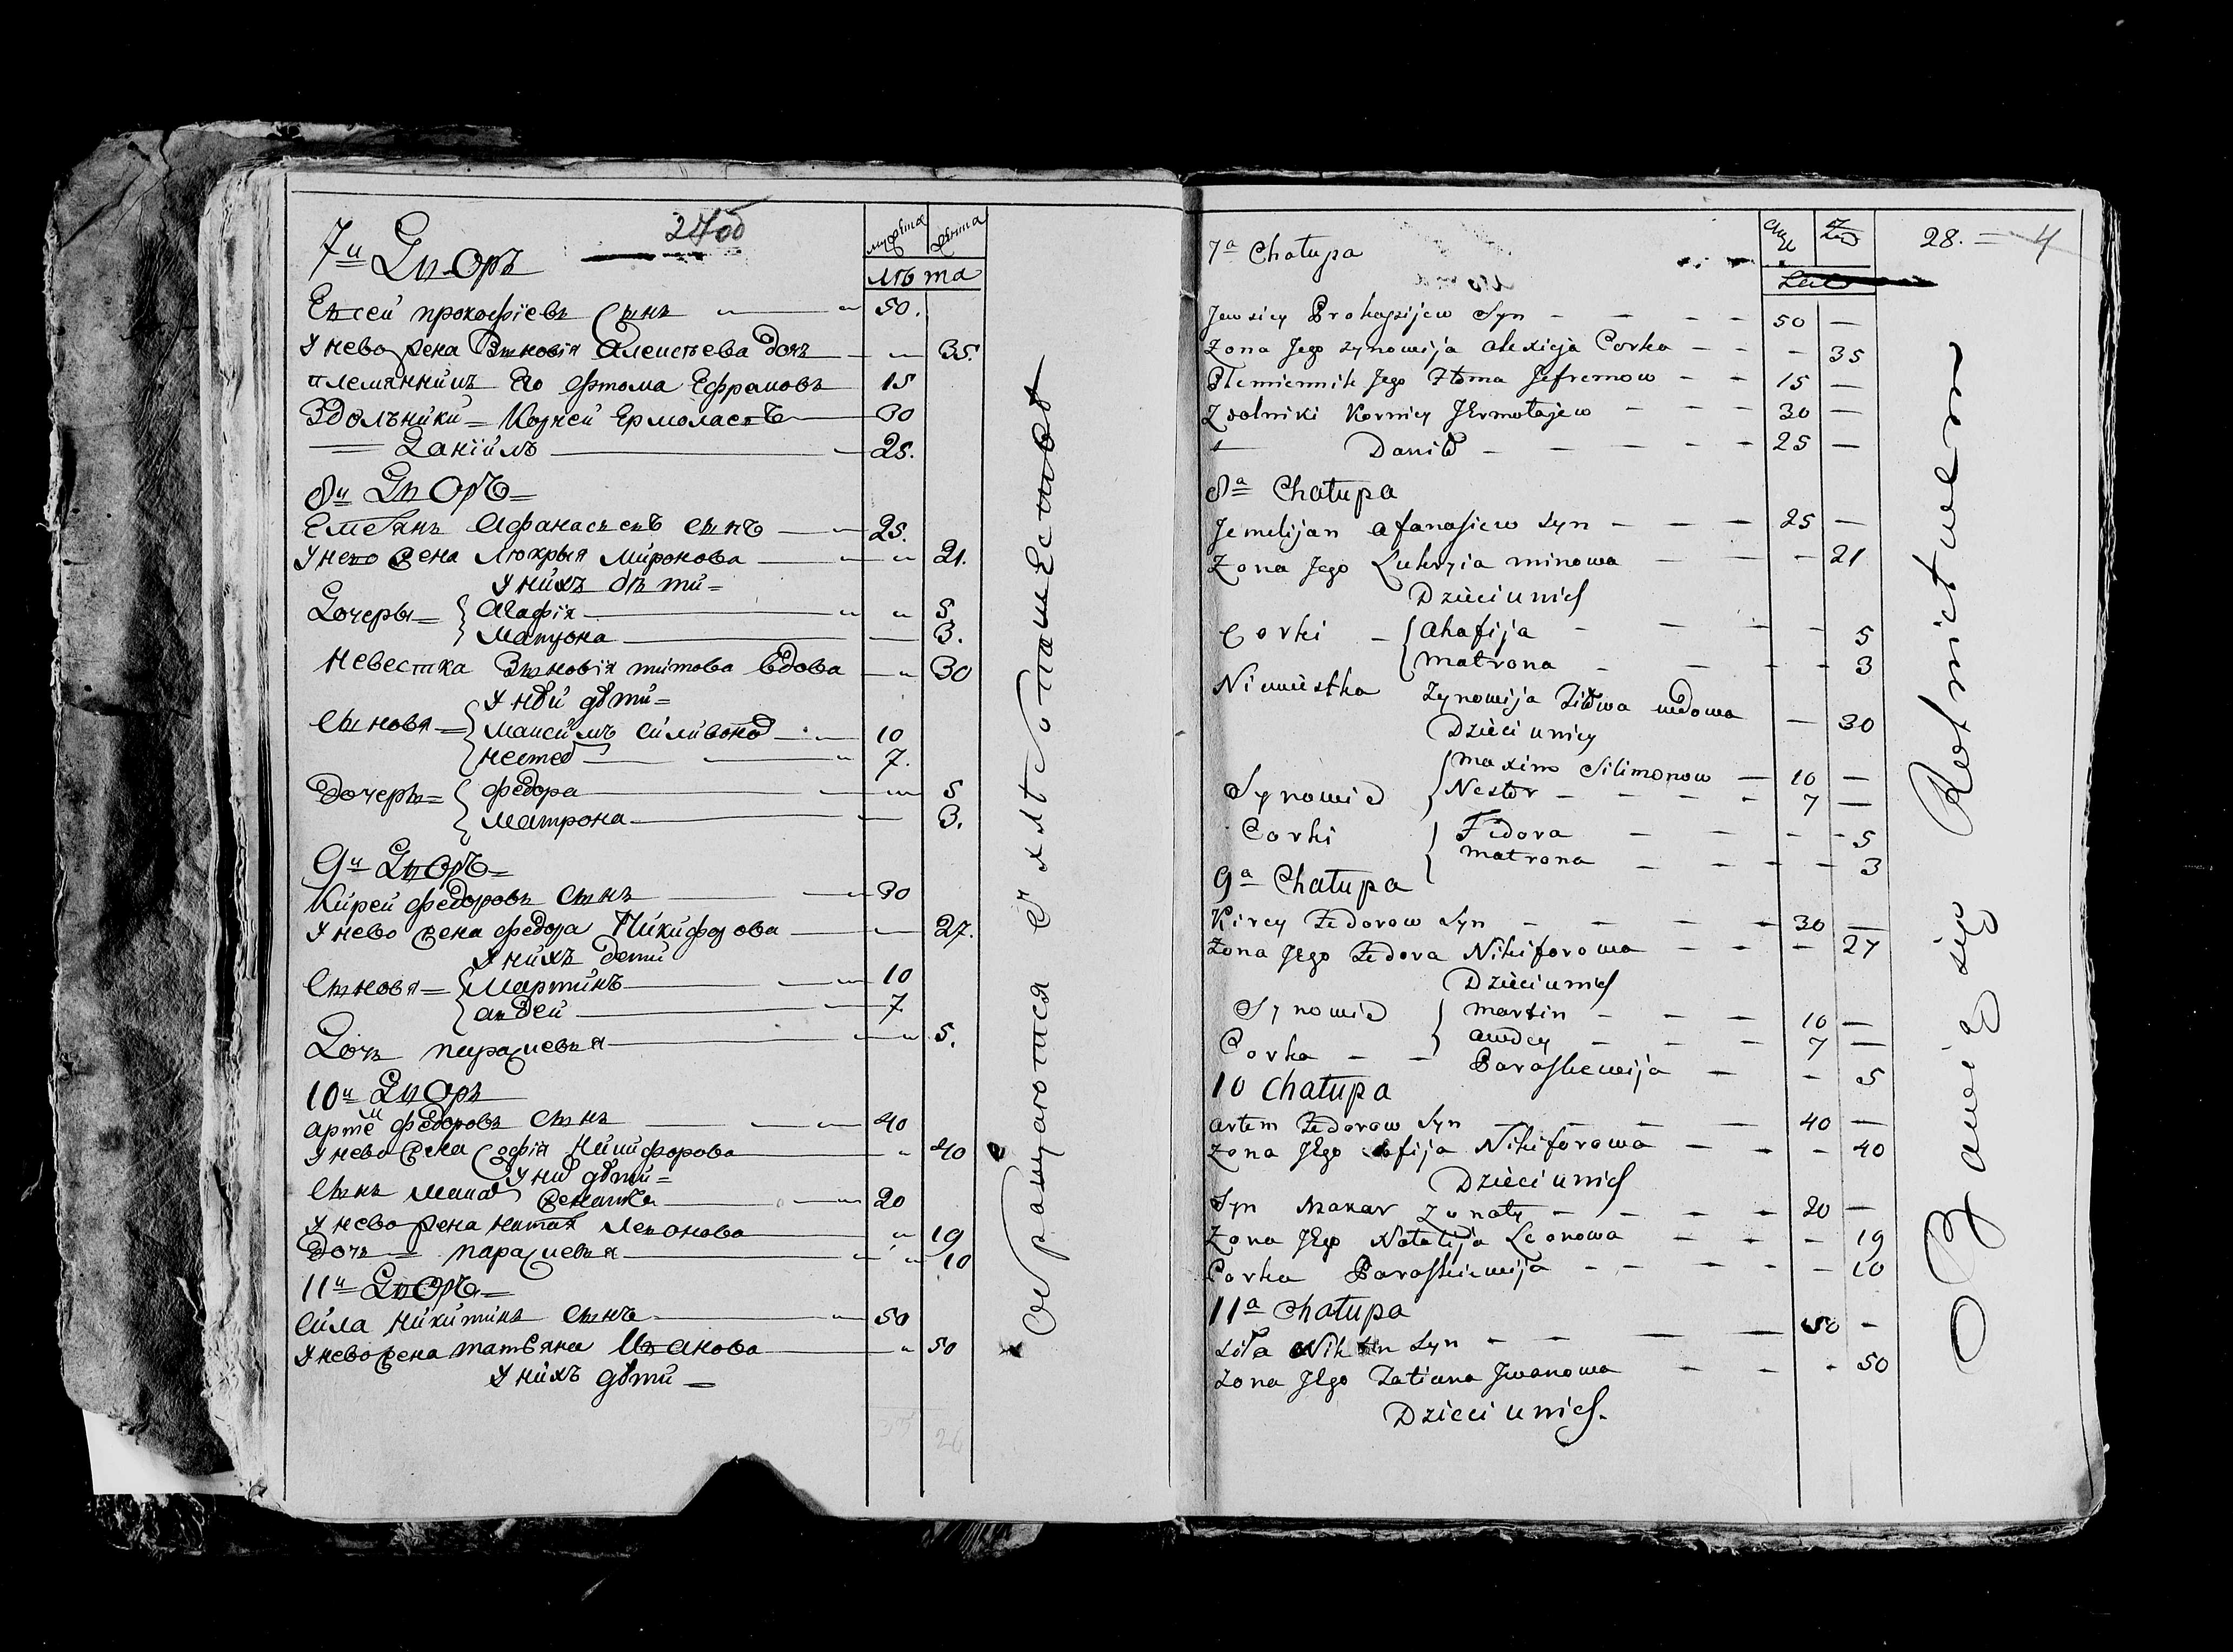 2400
7й Дворъ
мужеска
женска
лѣта
Евсей прокофіевъ Сынъ 50.
У нево жена Зѣновія Алексѣева дочь 35.
племянникъ Его фтома Ефрамовъ 15
Здольники = Корней Ермолаевъ 30
Данійлъ 25.
8й Дворъ =
Емеліянъ Афанасьевъ сынъ 25.
У нево жена Люкрыя Миронова 21.
У нихъ дѣти =
Дочеры = Агафія 5
Матрона 3.
Невестка Зѣновія титова вдова 30
У ней дѣти =
Сыновя = Максимъ Силивонов 10
Нестер 7.
Дочеры = федора 5
Матрона 3.
9й Дворъ =
Кирей федоровъ Сынъ 30
У нево жена федора Никифорова 27.
У нихъ дети
Сыновя = Мартинъ 10
авдей 7
Дочь парасковья 5.
10й Дворъ
артем федоровъ Сынъ 40
У нево жена Софія Никифорова 40
У них дѣти =
Сынъ Макар женатъ 20
У нево жена Наталя Левонова 19
Дочь парасковья 10
11й Дворъ =
Сила Никитинъ Сынъ 50
У нево жена татьяна Иванова 50
У нихъ дѣти =
26
Обращаются в хлѣбопашествѣ
28. = 4
7a Chałupa
Męż
Żeń
Lat
Jewsiey Prokopijew Syn 50
Zona Jego Zynowija alexieja Corka 35
Plemiennik Jego Ftoma Jefremow 15
Zdolniki Korniey JErmołajew 30
Daniło 25
8a Chałupa
Jemelijan afanasiew Syn 25
Zona Jego Lukryia minowa 21
Dzieci u nich
Corki Ahafija 5
matrona 3
Niewiestka Zynowija Titowa wdowa 30
Dzieci u niey
Synowie maxim Silimonow 10
Nestor 7
Corki Fidora 5
matrona 3
9a Chałupa
Kirey Fedorow Syn 30
Zona JEgo Fedora Nikiforowa 27
Dzieci u nich
Synowie martin 10
awdey 7
Corka Paraskewija 5
10 Chałupa
artem Fedorow Syn 40
Zona JEgo Sofija Nikiforowa 40
Dzieci u nich
Syn Makar Zonaty 20
Zona JEgo Natalija Leonowa 19
Corka Paraskiewija 10
11a Chałupa
Siła Nikitin Syn 50
Zona JEgo Tatiana Jwanowa 50
Dzieci u nich.
Bawią się Rolnictwem